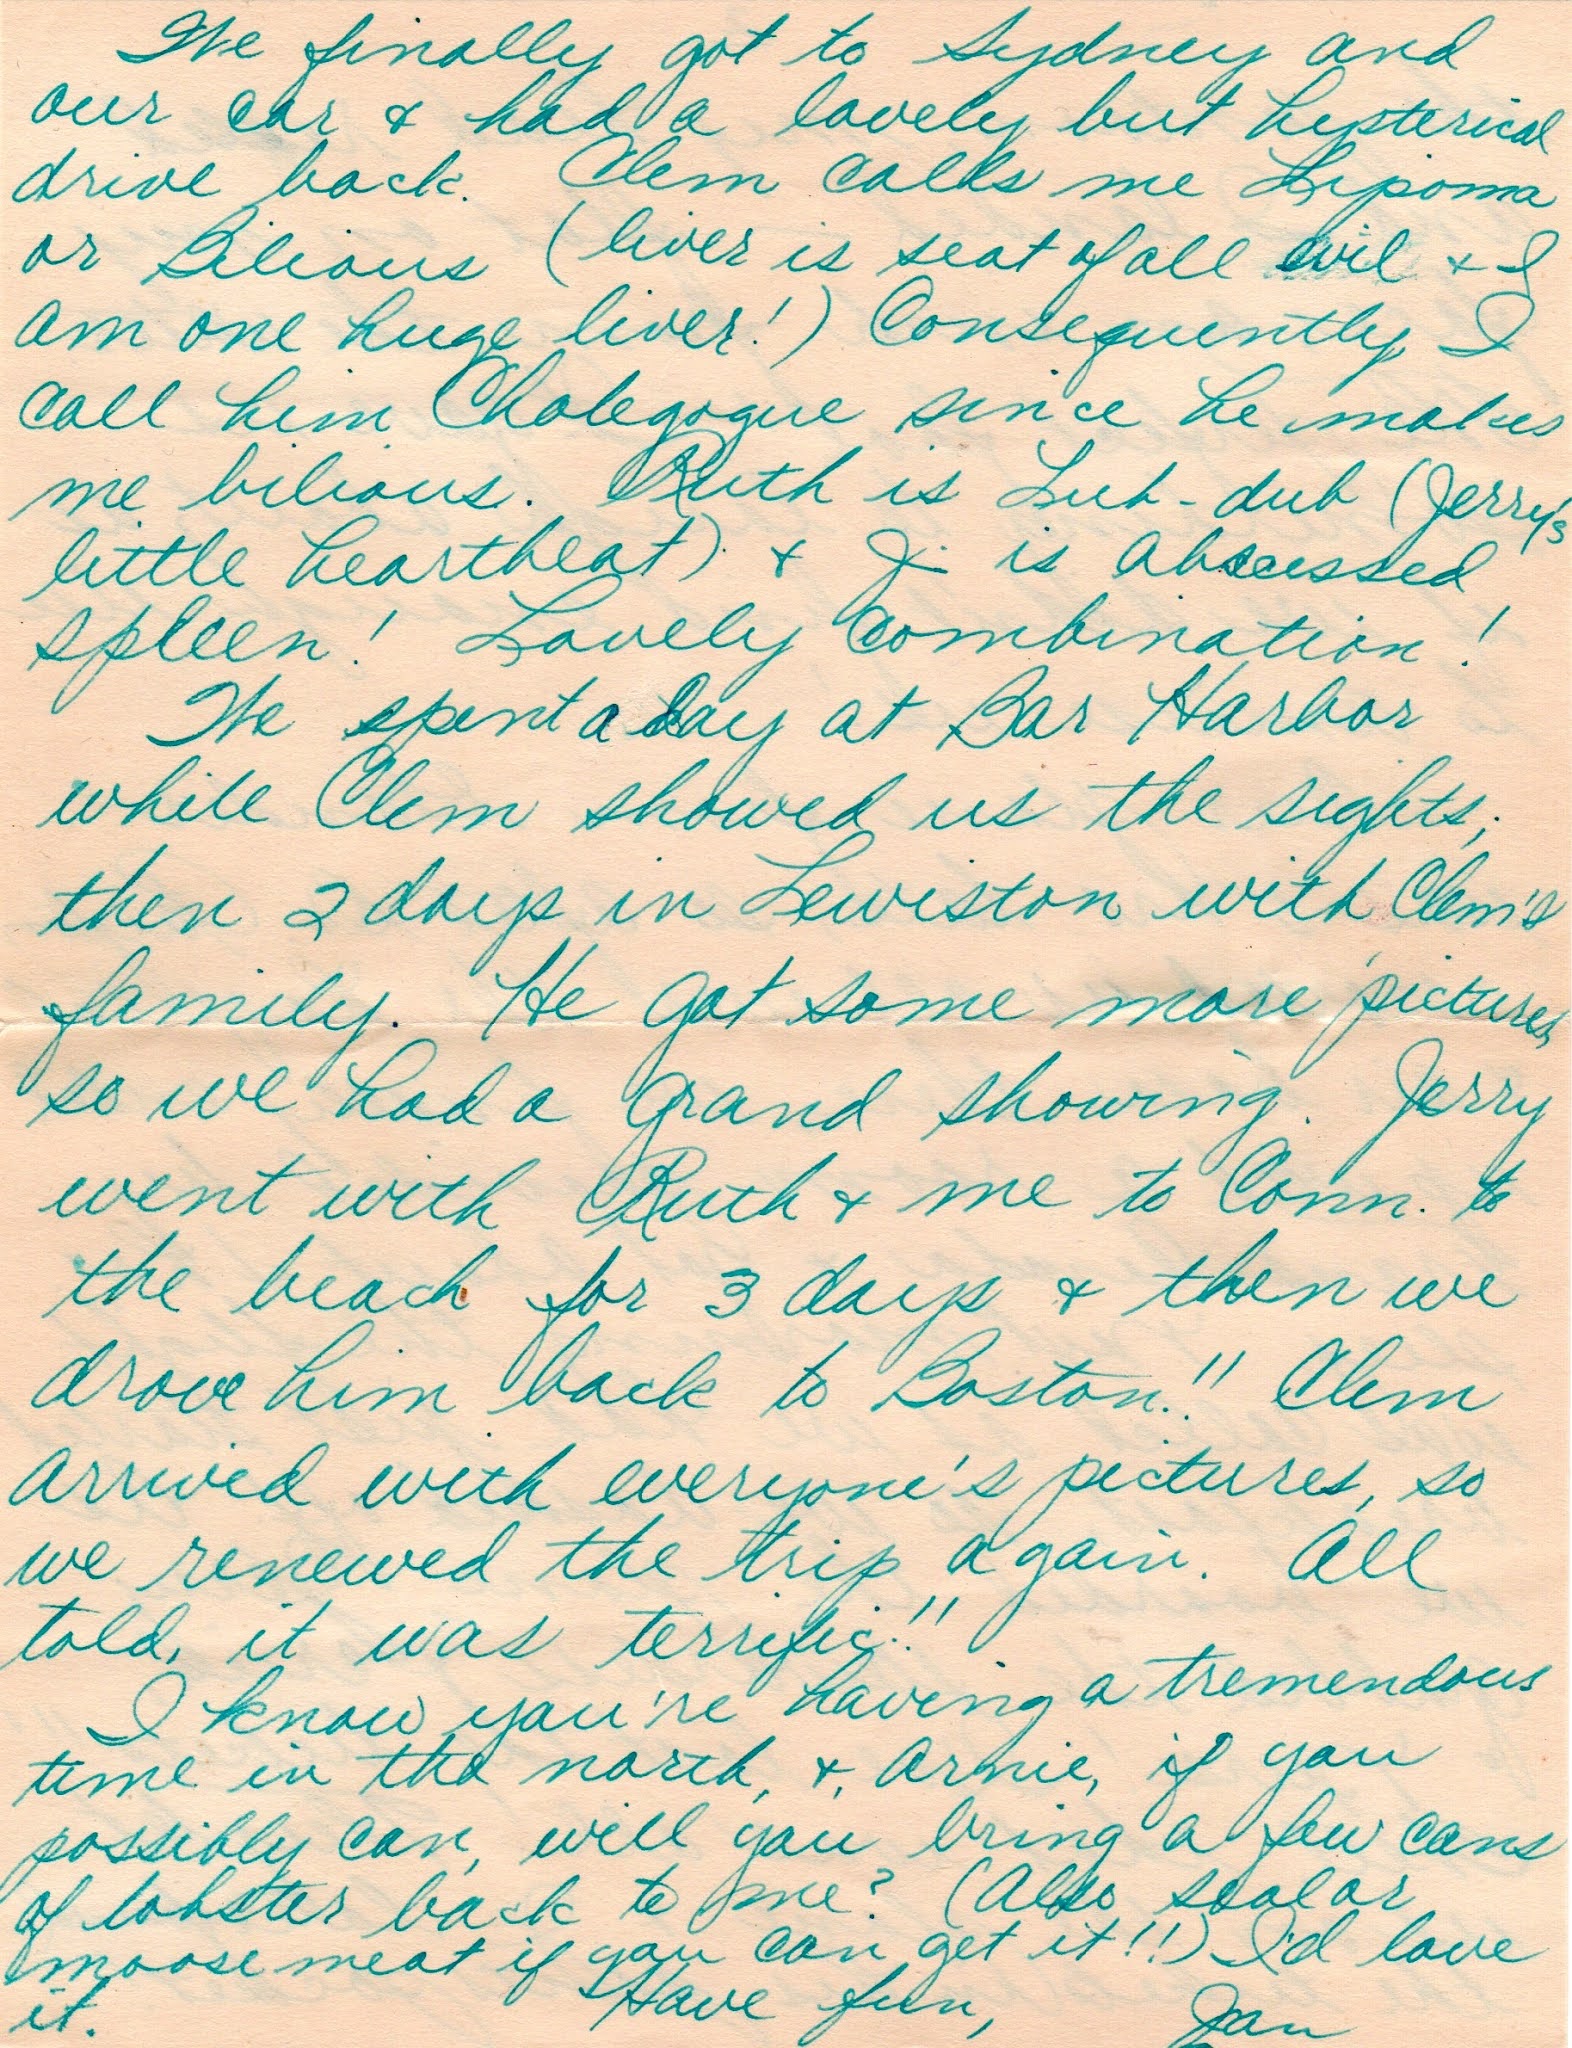 We finally got to Sydney and
our car & had a lovely but hysterical
drive back. Clem calls me Lipoma
or Bilious (liver is seat of all evil & I
am one huge liver!) Consequently, I
call him Cholegogue since he makes
me bilious. Ruth is Lub-dub (Jerry's
little heartbeat) & J. is abscessed
spleen! Lovely combination!
We spent a day at Bar Harbor
while Clem showed us the sights;
then 2 days in Lewiston with Clem's
family. He got some more pictures,
so we had a grand showing. Jerry
went with Ruth & me to Conn. to
the beach for 3 days & then we
drove him back to Boston!! Clem
arrived with everyone's pictures, so
we renewed the trip again. All
told, it was terrific!!
I know you're having a tremendous
time in the north, &, Arnie, if you
possibly can, will you bring a few cans
of lobster back to me? (Also seal or
moose meat if you can get it!!) I'd love
it. Have fun,
Jan